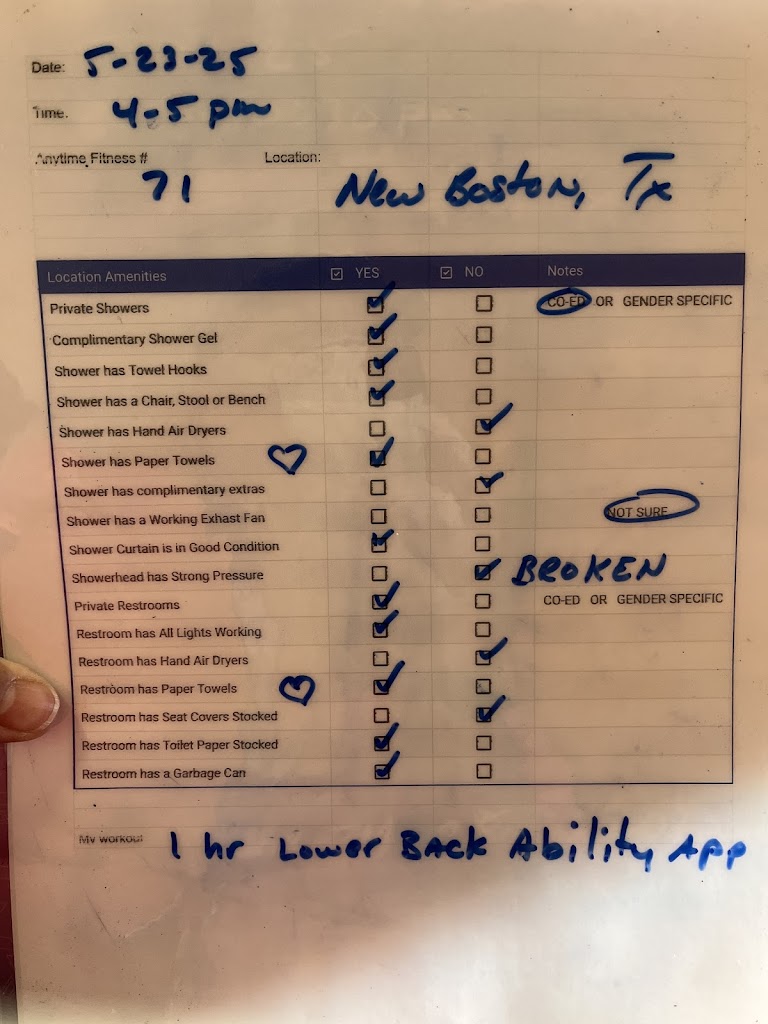 Date: 5-23-25
Time. 4-5 pm
Anytime Fitness # Location:
71 New Boston, Tx
Location Amenities ☑ YES ☑ NO Notes
Private Showers ☑ ☐ CO-ED OR GENDER SPECIFIC
Complimentary Shower Gel ☑ ☐
Shower has Towel Hooks ☑ ☐
Shower has a Chair, Stool or Bench ☑ ☐
Shower has Hand Air Dryers ☐ ☑
Shower has Paper Towels ♡ ☑ ☐
Shower has complimentary extras ☐ ☑
Shower has a Working Exhast Fan ☐ ☐ NOT SURE
Shower Curtain is in Good Condition ☑ ☐
Showerhead has Strong Pressure ☐ ☑ BROKEN
Private Restrooms ☑ ☐ CO-ED OR GENDER SPECIFIC
Restroom has All Lights Working ☑ ☐
Restroom has Hand Air Dryers ☐ ☑
Restroom has Paper Towels ♡ ☑ ☐
Restroom has Seat Covers Stocked ☐ ☑
Restroom has Toilet Paper Stocked ☑ ☐
Restroom has a Garbage Can ☑ ☐
My workout 1 hr Lower Back Ability App